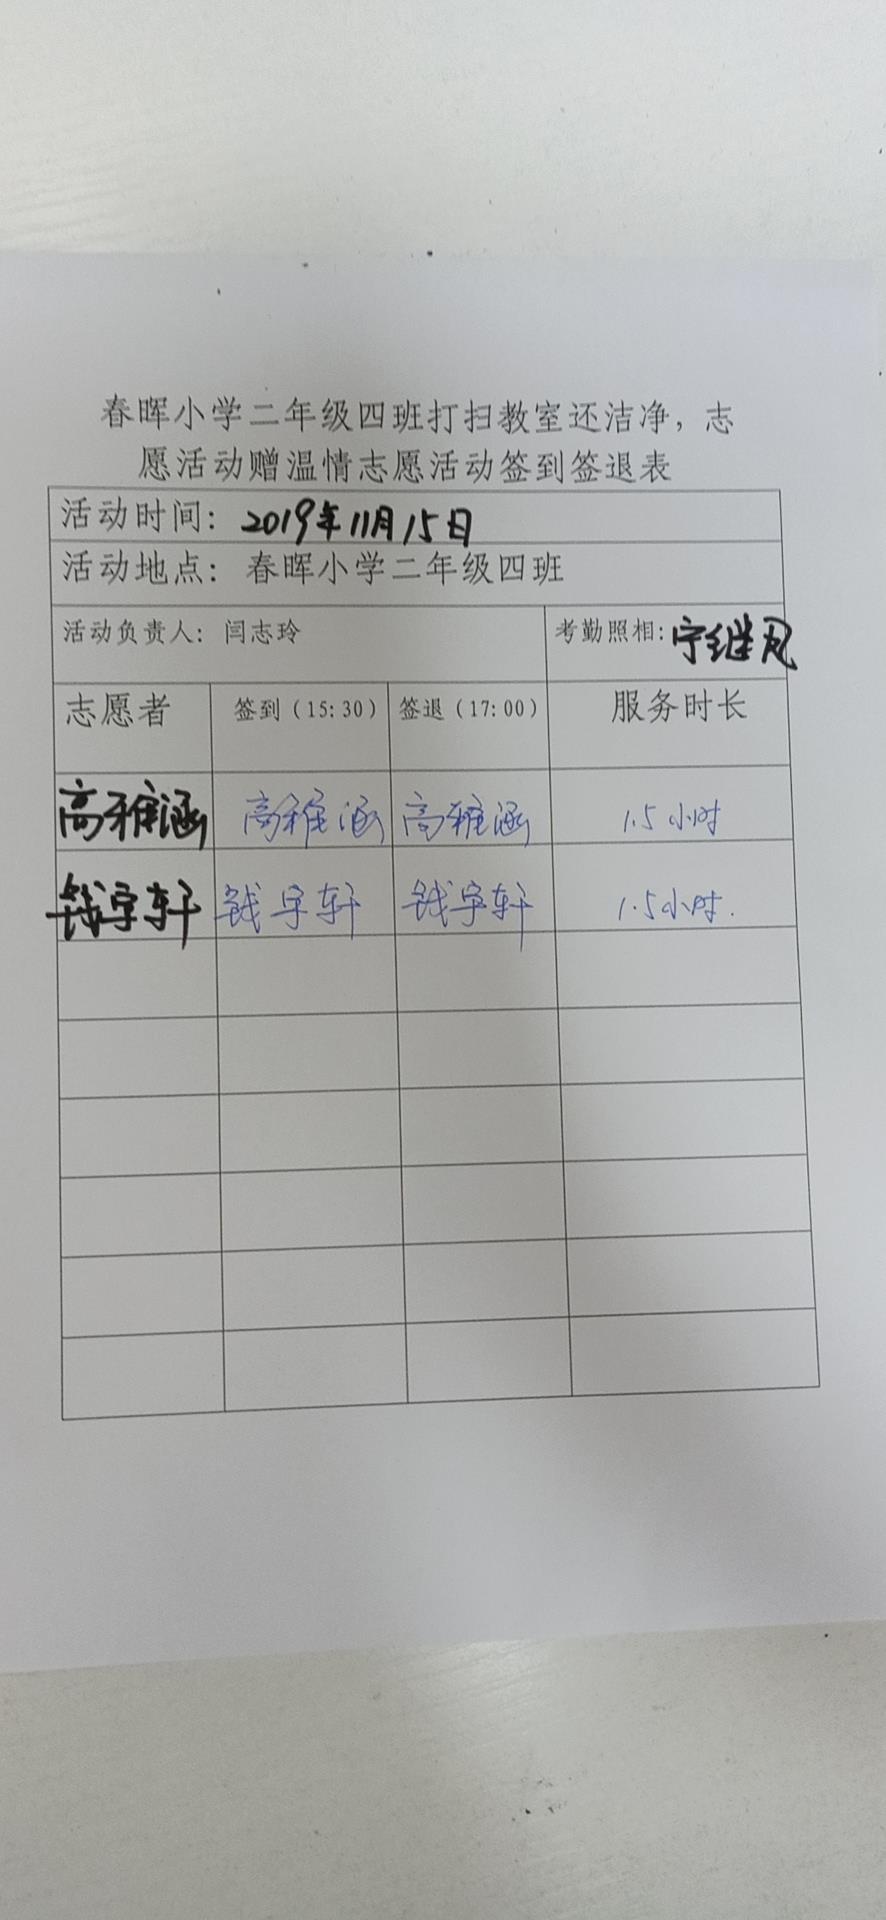 春晖小学二年级四班打扫教室还洁净，志
愿活动赠温情志愿活动签到签退表
活动时间：2019年11月15日
活动地点：春晖小学二年级四班
活动负责人：闫志玲 考勤照相：宁继凤
志愿者 签到（15:30） 签退（17:00） 服务时长
高雅涵 高雅涵 高雅涵 1.5小时
钱宇轩 钱宇轩 钱宇轩 1.5小时.